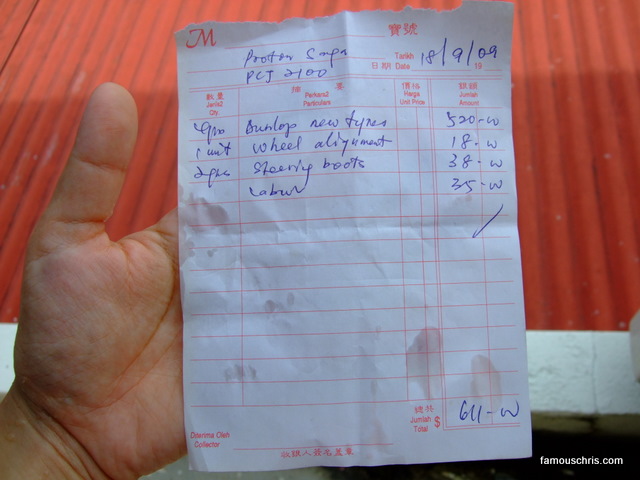 M 寶號
Proton Saga Tarikh 18/9/09
PCJ 2100 日期 Date 19
數量 Jenis2 Qty 摘要 Perkara2 Particulars 價格 Harga Unit Price 銀額 Jumlah Amount
4pcs Dunlop new tyres 520-00
1 unit wheel alignment 18-00
2pcs Steering boots 38-00
Labour 35-00
總共 Jumlah Total $ 611-00
Diterima Oleh
Collector
收銀人簽名蓋章
famouschris.com